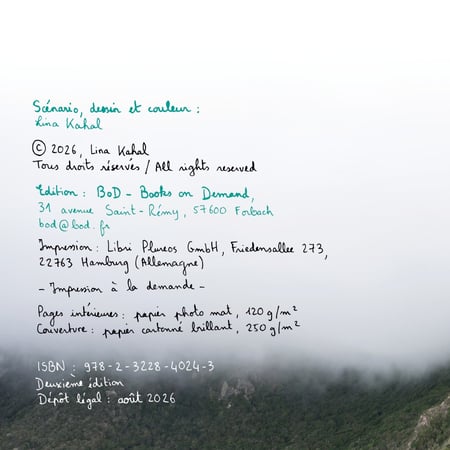 Scénario, dessin et couleur :
Lina Kahal
© 2026, Lina Kahal
Tous droits réservés / All rights reserved
Édition : BoD - Books on Demand,
31 avenue Saint-Rémy, 57600 Forbach
bod@bod.fr
Impression : Libri Plureos GmbH, Friedensallee 273,
22763 Hamburg (Allemagne)
- Impression à la demande -
Pages intérieures : papier photo mat, 120 g/m²
Couverture : papier cartonné brillant, 250 g/m²
ISBN : 978-2-3228-4024-3
Deuxième édition
Dépôt légal : août 2026